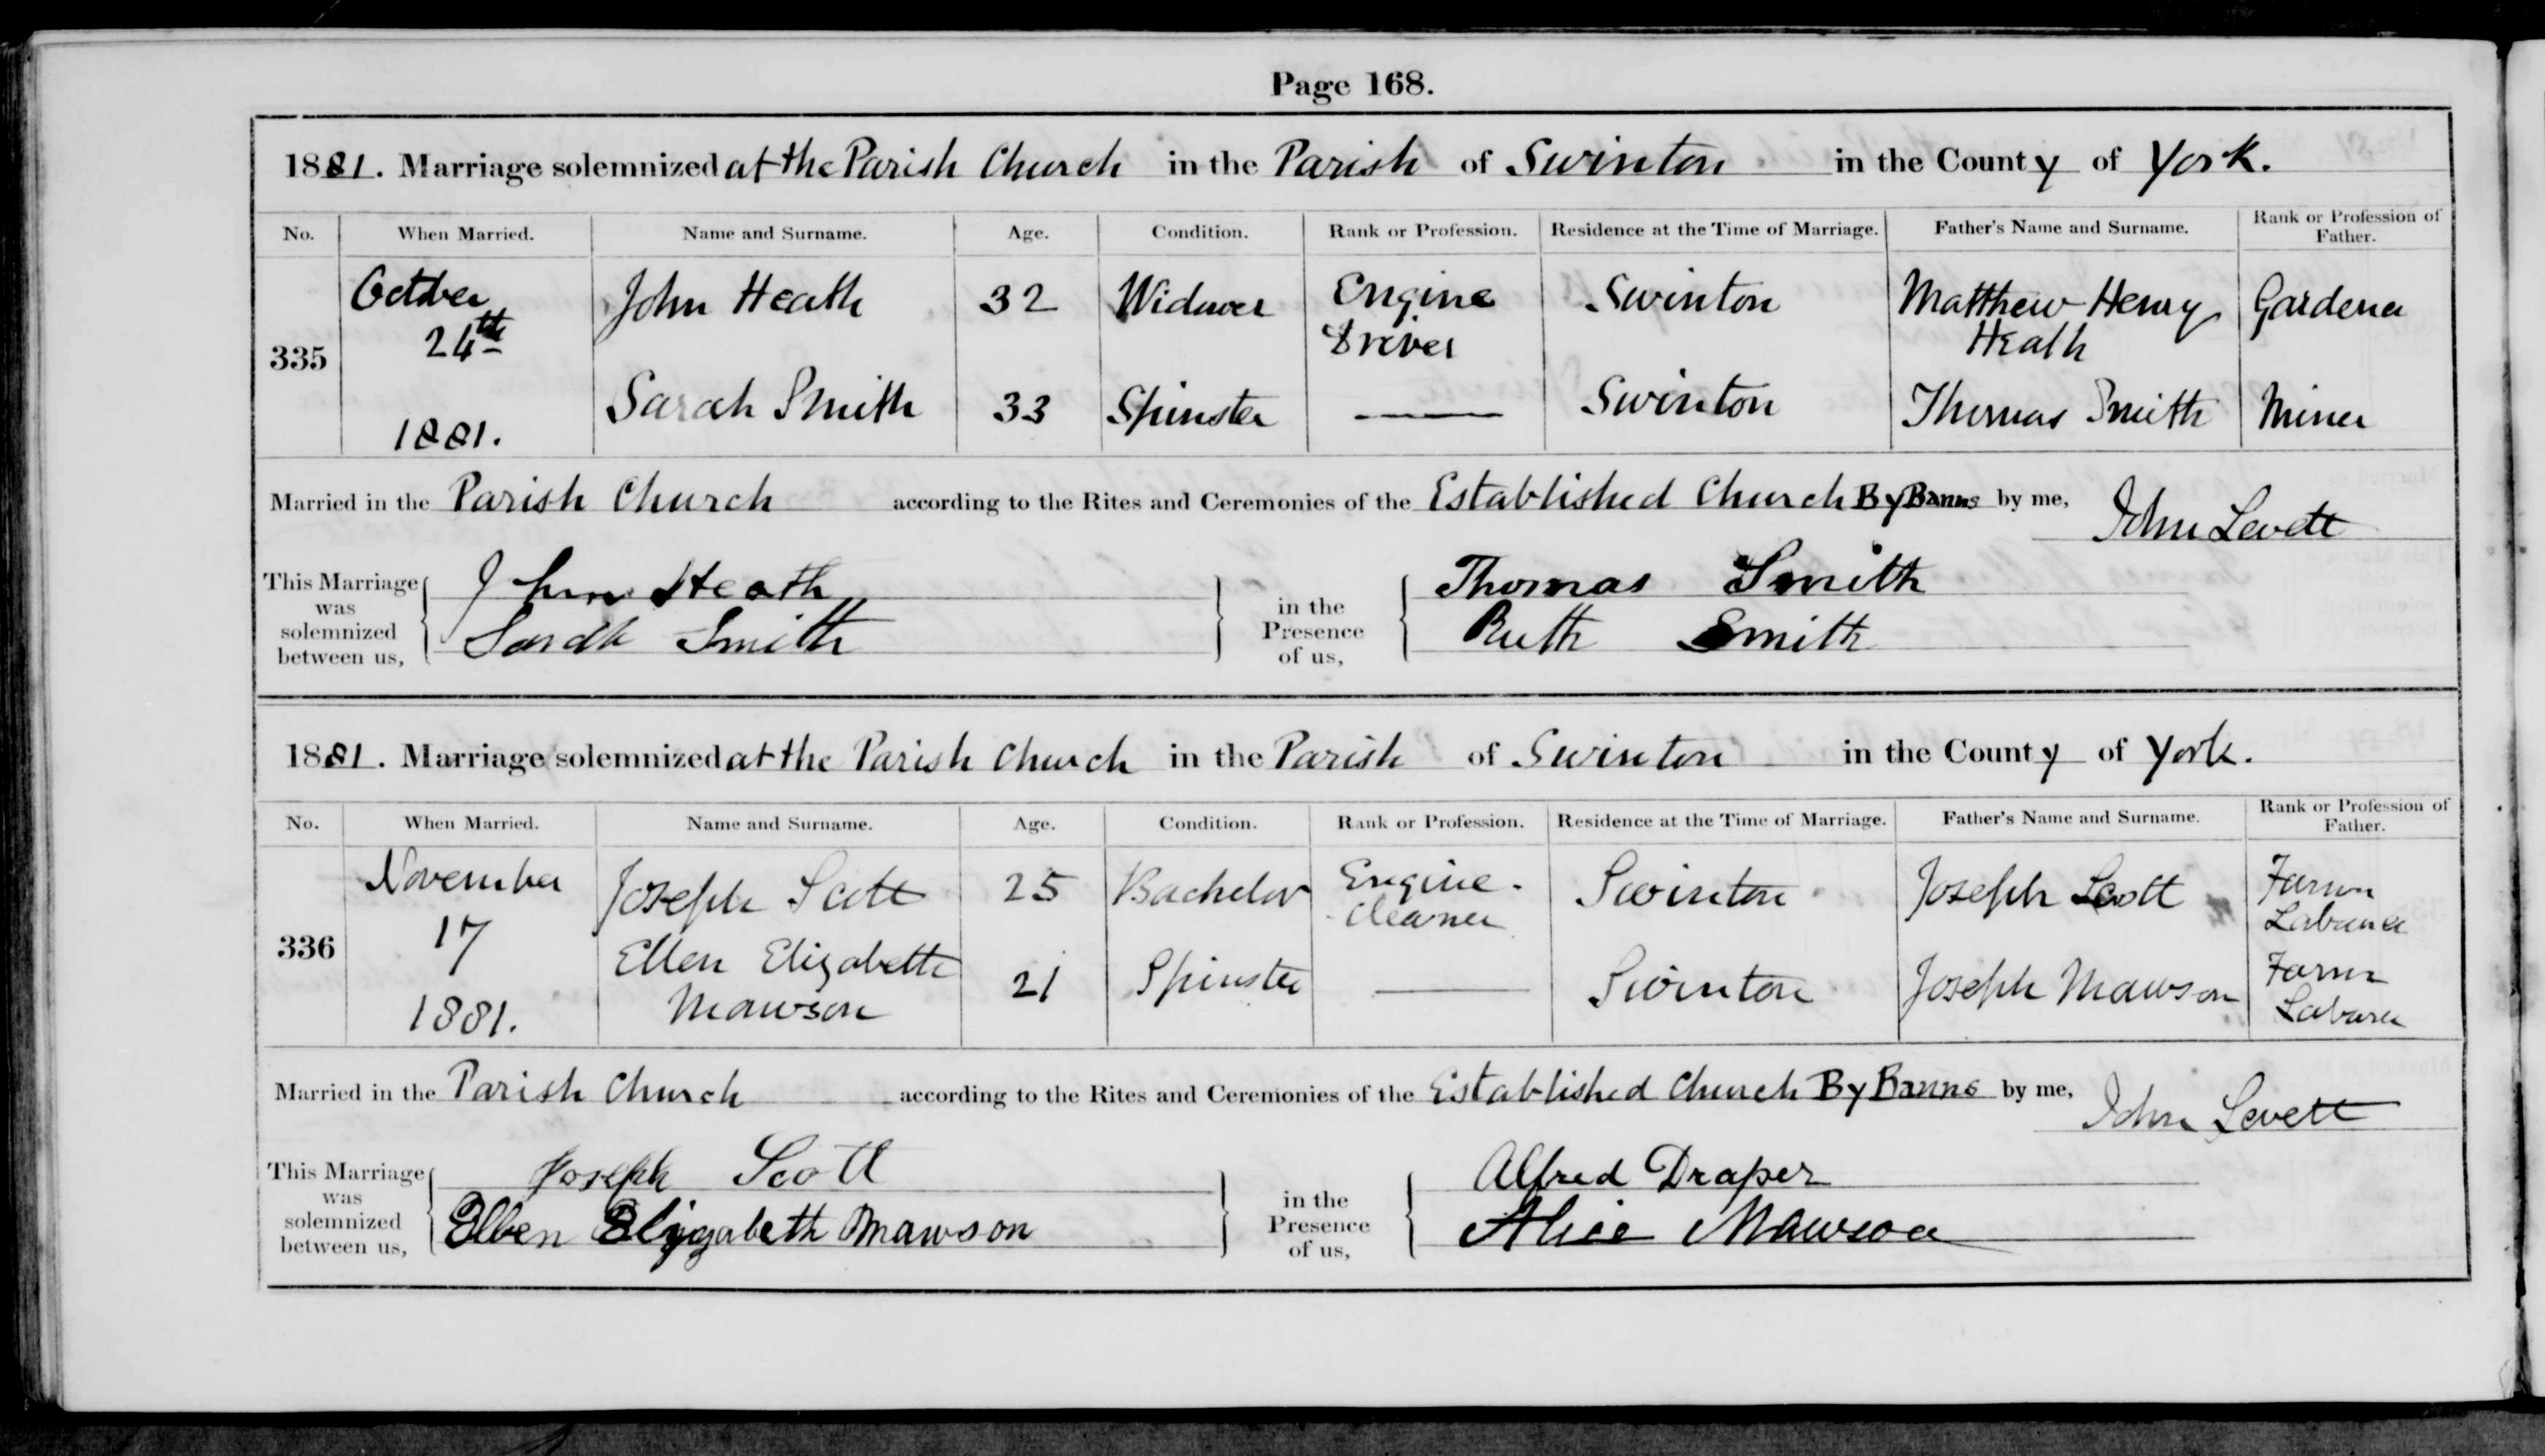 Page 168.
1881. Marriage solemnized at the Parish Church in the Parish of Swinton in the County of York.
No. When Married. Name and Surname. Age. Condition. Rank or Profession. Residence at the Time of Marriage. Father's Name and Surname. Rank or Profession of Father.
335 October 24th 1881. John Heath 32 Widower Engine Driver Swinton Matthew Henry Heath Gardener
Sarah Smith 33 Spinster Swinton Thomas Smith Miner
Married in the Parish Church according to the Rites and Ceremonies of the Established Church By Banns by me, John Levett
This Marriage was solemnized between us, John Heath Sarah Smith in the Presence of us, Thomas Smith Ruth Smith
1881. Marriage solemnized at the Parish Church in the Parish of Swinton in the County of York.
No. When Married. Name and Surname. Age. Condition. Rank or Profession. Residence at the Time of Marriage. Father's Name and Surname. Rank or Profession of Father.
336 November 17 1881. Joseph Scott 25 Bachelor Engine-cleaner Swinton Joseph Scott Farm Labourer
Ellen Elizabeth Mawson 21 Spinster Swinton Joseph Mawson Farm Labourer
Married in the Parish Church according to the Rites and Ceremonies of the Established Church By Banns by me, John Levett
This Marriage was solemnized between us, Joseph Scott Ellen Elizabeth Mawson in the Presence of us, Alfred Draper Alice Mawson